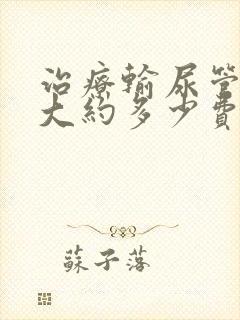 治療輸尿管
大約多少費
蘇子落